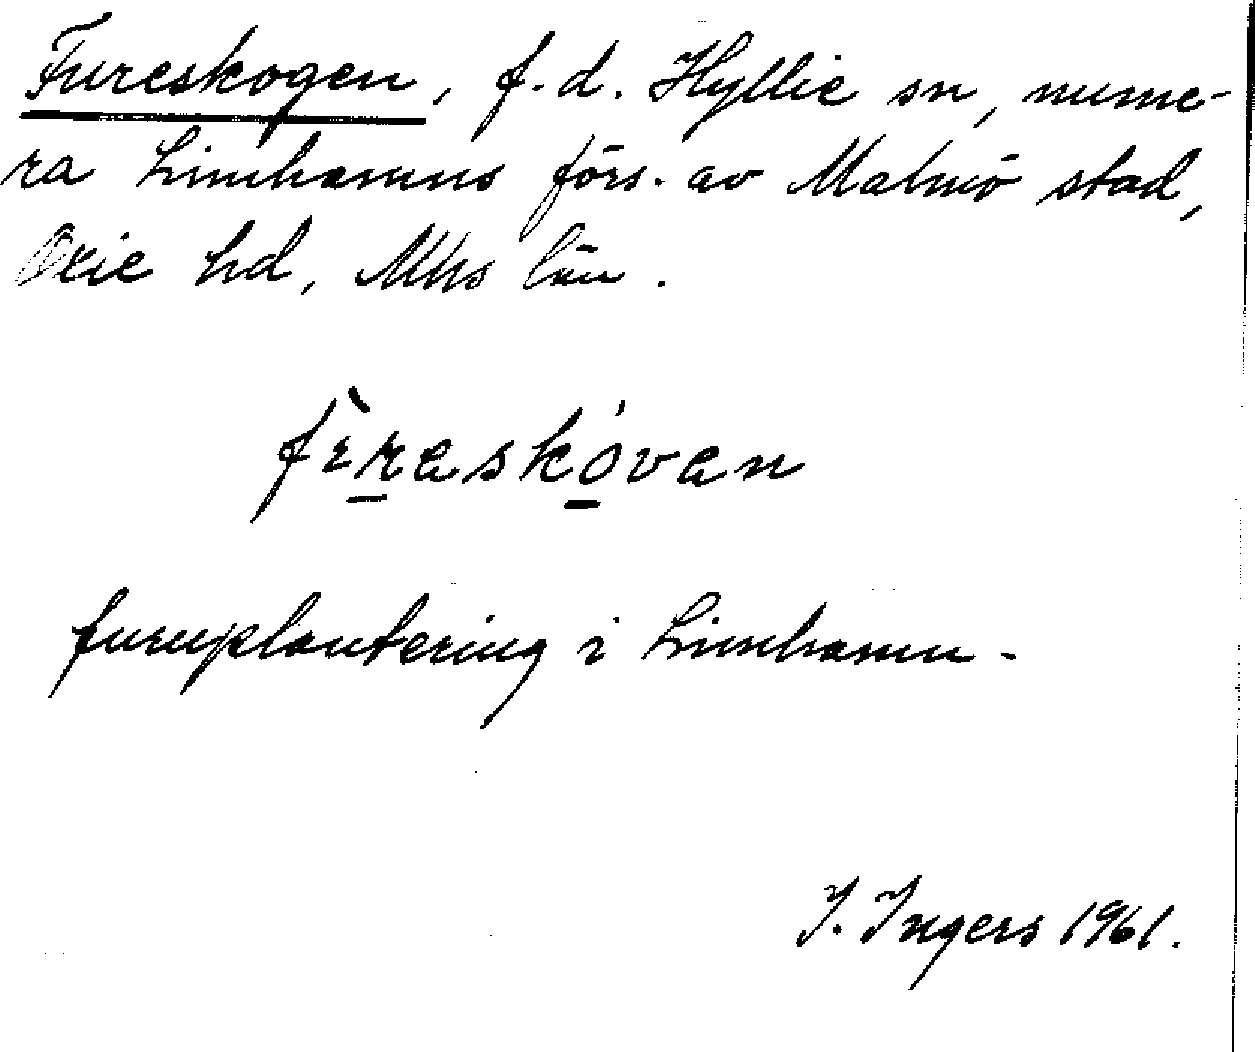 Fureskogen, f.d. Hyllie sn, nume-
ra Limhamns förs. av Malmö stad,
Oxie hd, Mhs län.
furuplantering i Limhamn.
I. Ingers 1961.